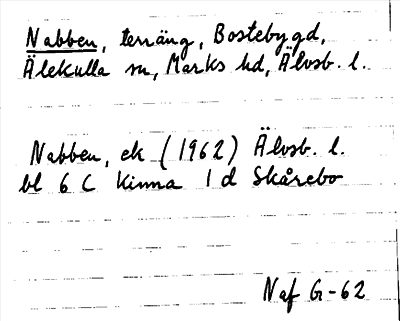 Nabben, terräng, Bostebygd,
Älekulla sn, Marks hd, Älvsb. l.
Nabben, ek (1962) Älvsb. l.
bl 6 C Kinna 1 d Skårebo
Naf G-62